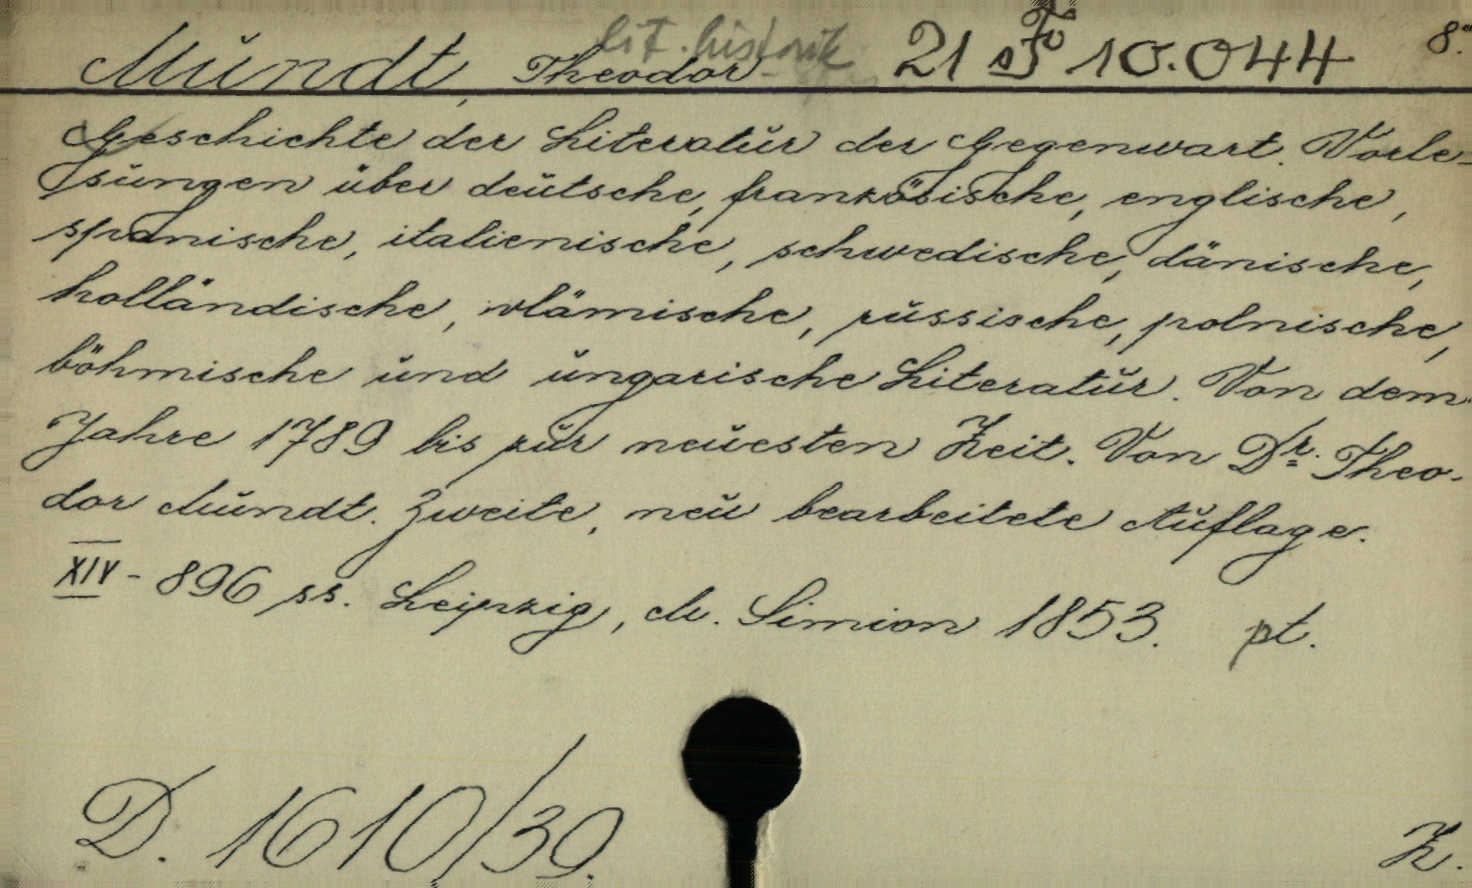 lit. historik
Mundt, Theodor 21 F 10.044 8.°
Geschichte der Literatur der Gegenwart. Vorle-
sungen über deutsche, französische, englische,
spanische, italienische, schwedische, dänische,
holländische, vlämische, russische, polnische,
böhmische und ungarische Literatur. Von dem
Jahre 1789 bis zur neuesten Zeit. Von Dr. Theo-
dor Mundt. Zweite, neu bearbeitete Auflage.
XIV - 896 ss. Leipzig, M. Simion 1853. pt.
D. 1610/39. K.